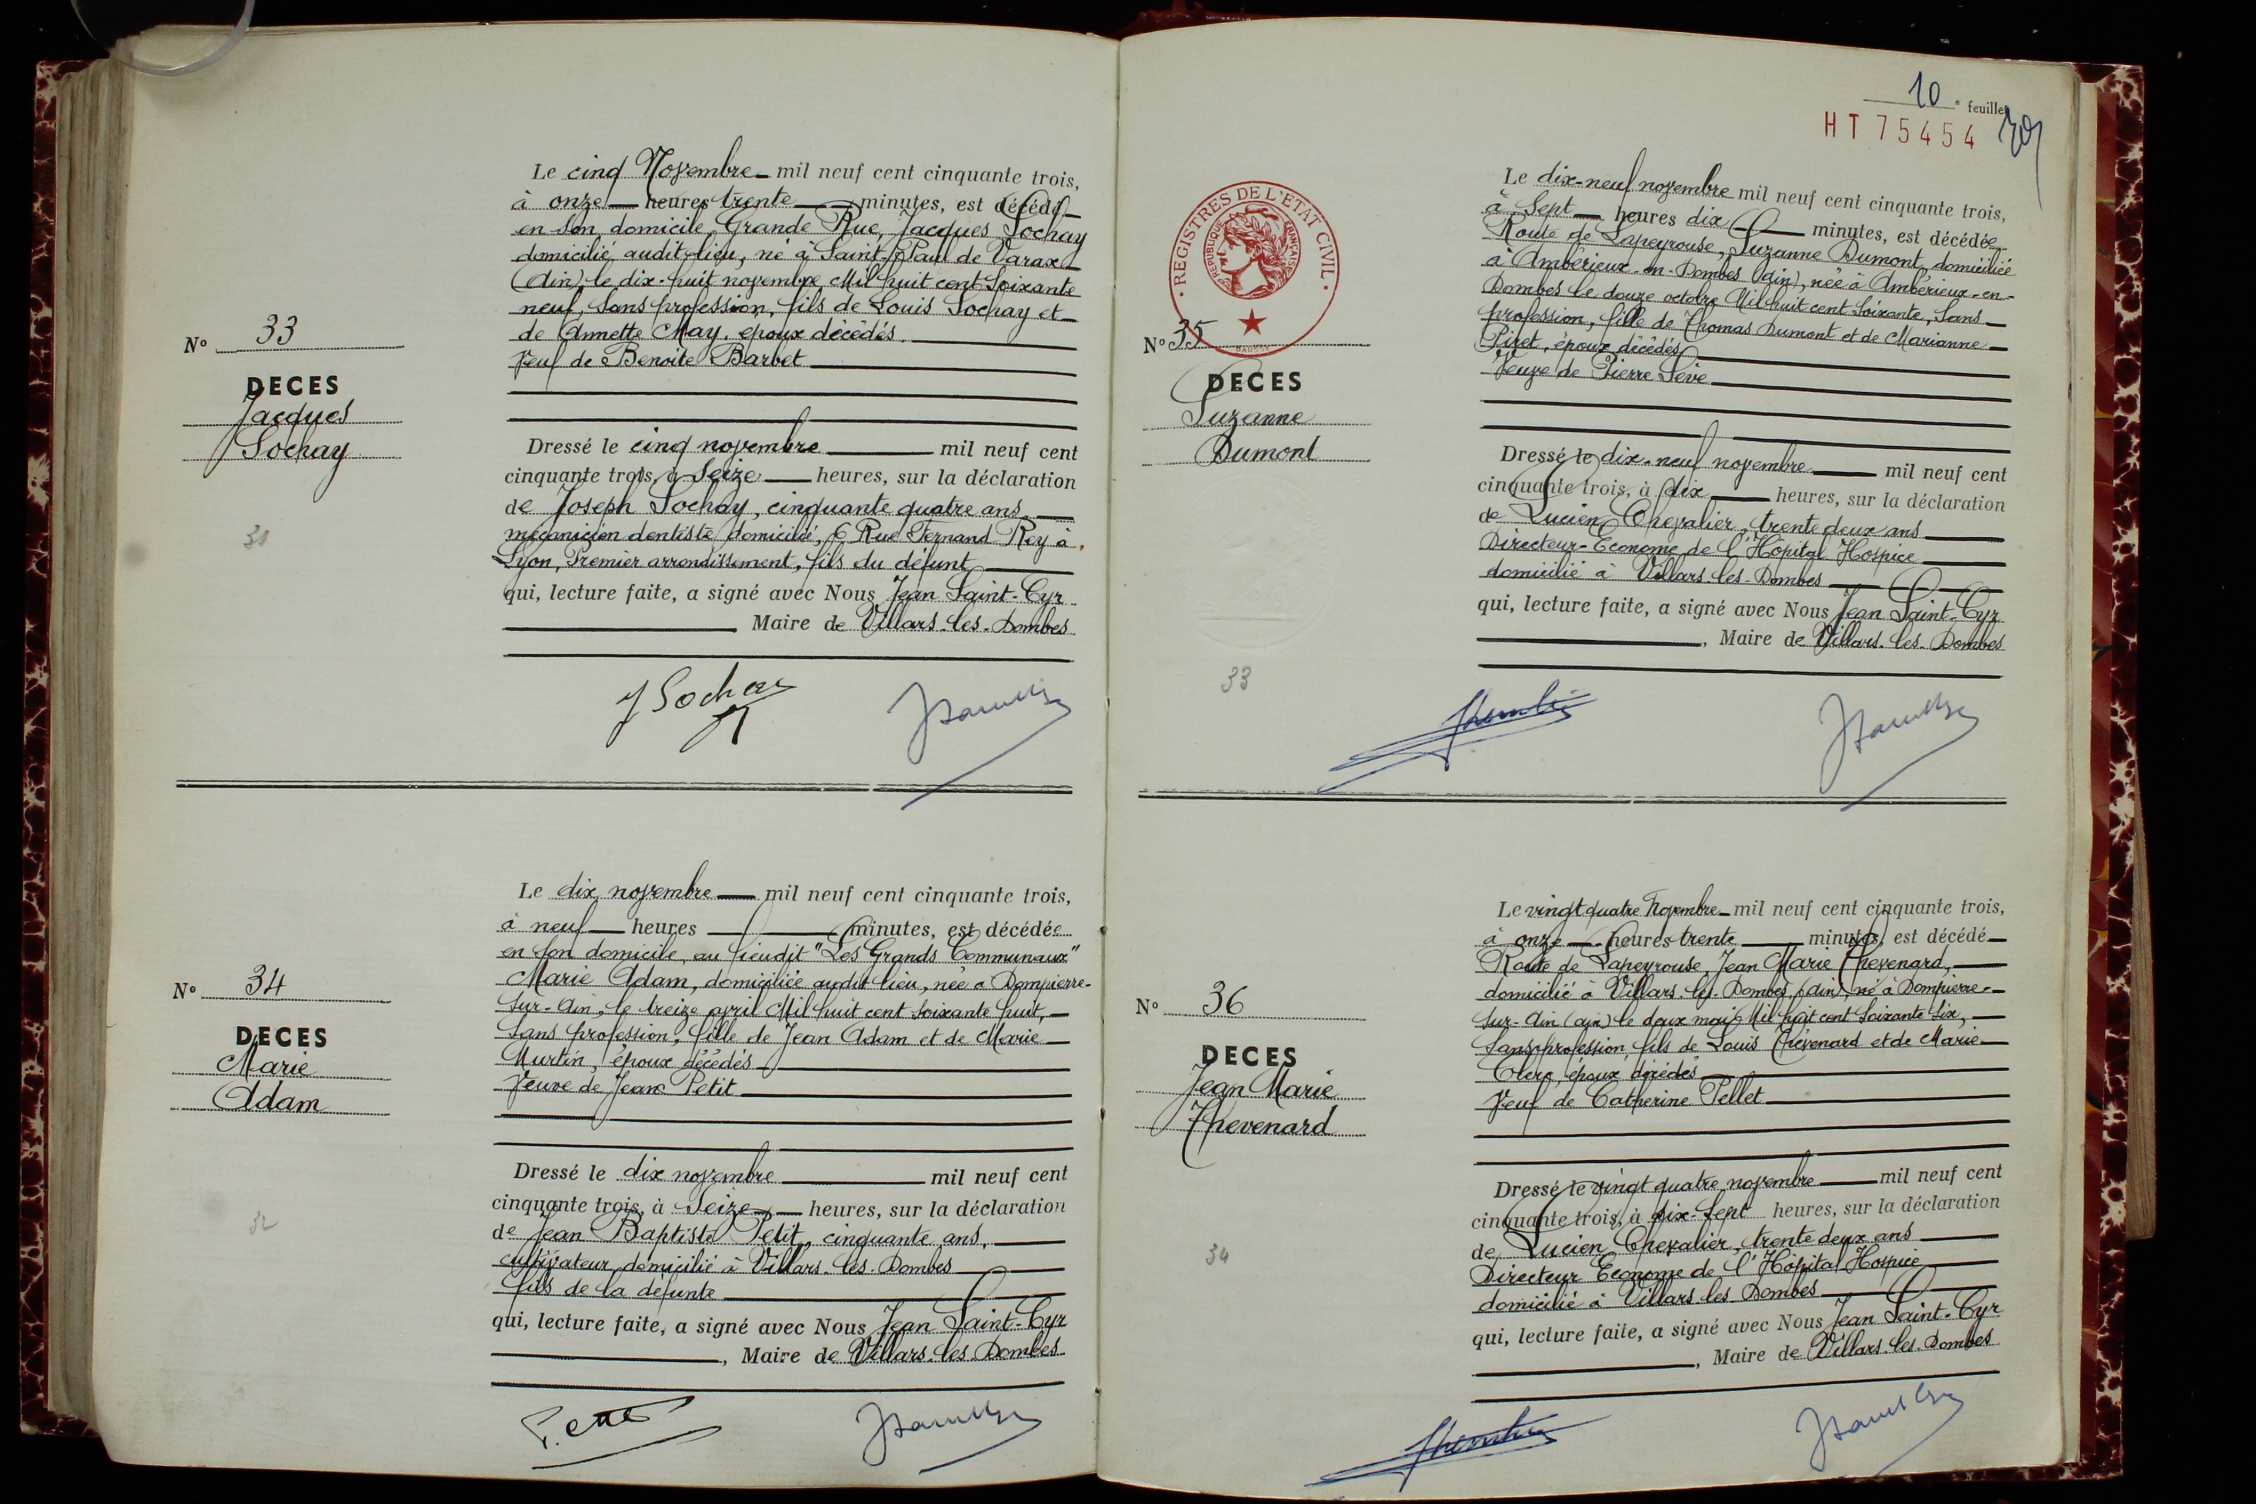 Le cinq Novembre mil neuf cent cinquante trois,
à onze heures trente minutes, est décédé
en son domicile, Grande Rue, Jacques Sochay
domicilié audit-lieu, né à Saint-Paul de Varax
(Ain) le dix-huit novembre Mil huit cent soixante
neuf, sans profession, fils de Louis Sochay et
de Annette May, époux décédés.
Veuf de Benoite Barbet
N° 33
DECES
Jacques
Sochay
31
Dressé le cinq novembre mil neuf cent
cinquante trois, à seize heures, sur la déclaration
de Joseph Sochay, cinquante quatre ans
mécanicien dentiste domicilié, 6 Rue Fernand Rey à
Lyon, Premier arrondissement, fils du défunt
qui, lecture faite, a signé avec Nous Jean Saint-Cyr
Maire de Villars-les-Dombes
J Sochay
Le dix novembre mil neuf cent cinquante trois,
à neuf heures minutes, est décédée
en son domicile, au lieudit "Les Grands Communaux"
Marie Adam, domiciliée audit lieu, née à Dompierre-
sur-Ain, le treize avril Mil huit cent soixante huit,
sans profession, fille de Jean Adam et de Marie
Murtin, époux décédés
Veuve de Jean Petit
N° 34
DECES
Marie
Adam
32
Dressé le dix novembre mil neuf cent
cinquante trois, à seize heures, sur la déclaration
de Jean Baptiste Petit, cinquante ans,
cultivateur, domicilié à Villars-les-Dombes
fils de la défunte
qui, lecture faite, a signé avec Nous Jean Saint-Cyr
, Maire de Villars-les-Dombes
Petit
10e feuille
HT 75454
REGISTRES DE L'ETAT CIVIL
REPUBLIQUE FRANÇAISE
Le dix-neuf novembre mil neuf cent cinquante trois,
à sept heures dix minutes, est décédée
Route de Lapeyrouse, Suzanne Dumont, domiciliée
à Ambérieux-en-Dombes (Ain), née à Ambérieux-en-
Dombes le douze octobre Mil huit cent soixante, sans
profession, fille de Thomas Dumont et de Marianne
Piret, époux décédés
Veuve de Pierre Sève
N° 35
DECES
Suzanne
Dumont
33
Dressé le dix-neuf novembre mil neuf cent
cinquante trois, à dix heures, sur la déclaration
de Lucien Chevalier, trente deux ans
Directeur-Econome de l'Hôpital Hospice
domicilié à Villars-les-Dombes
qui, lecture faite, a signé avec Nous Jean Saint-Cyr
, Maire de Villars-les-Dombes
Le vingt quatre Novembre mil neuf cent cinquante trois,
à onze heures trente minutes, est décédé
Route de Lapeyrouse, Jean Marie Thevenard,
domicilié à Villars-les-Dombes (Ain), né à Dompierre-
sur-Ain (Ain) le deux mai Mil huit cent soixante six,
sans profession, fils de Louis Thévenard et de Marie
Clerc, époux décédés
Veuf de Catherine Pellet
N° 36
DECES
Jean Marie
Thevenard
34
Dressé le vingt quatre novembre mil neuf cent
cinquante trois, à dix-sept heures, sur la déclaration
de Lucien Chevalier, trente deux ans
Directeur Econome de l'Hôpital Hospice
domicilié à Villars les Dombes
qui, lecture faite, a signé avec Nous Jean Saint-Cyr
, Maire de Villars-les-Dombes